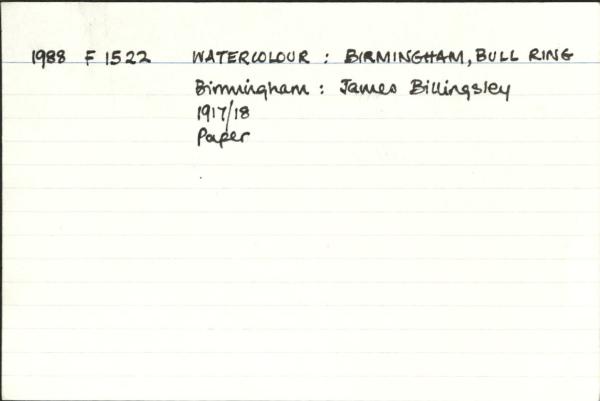 1988 F 1522 WATERCOLOUR : BIRMINGHAM, BULL RING
Birmingham : James Billingsley
1917/18
Paper